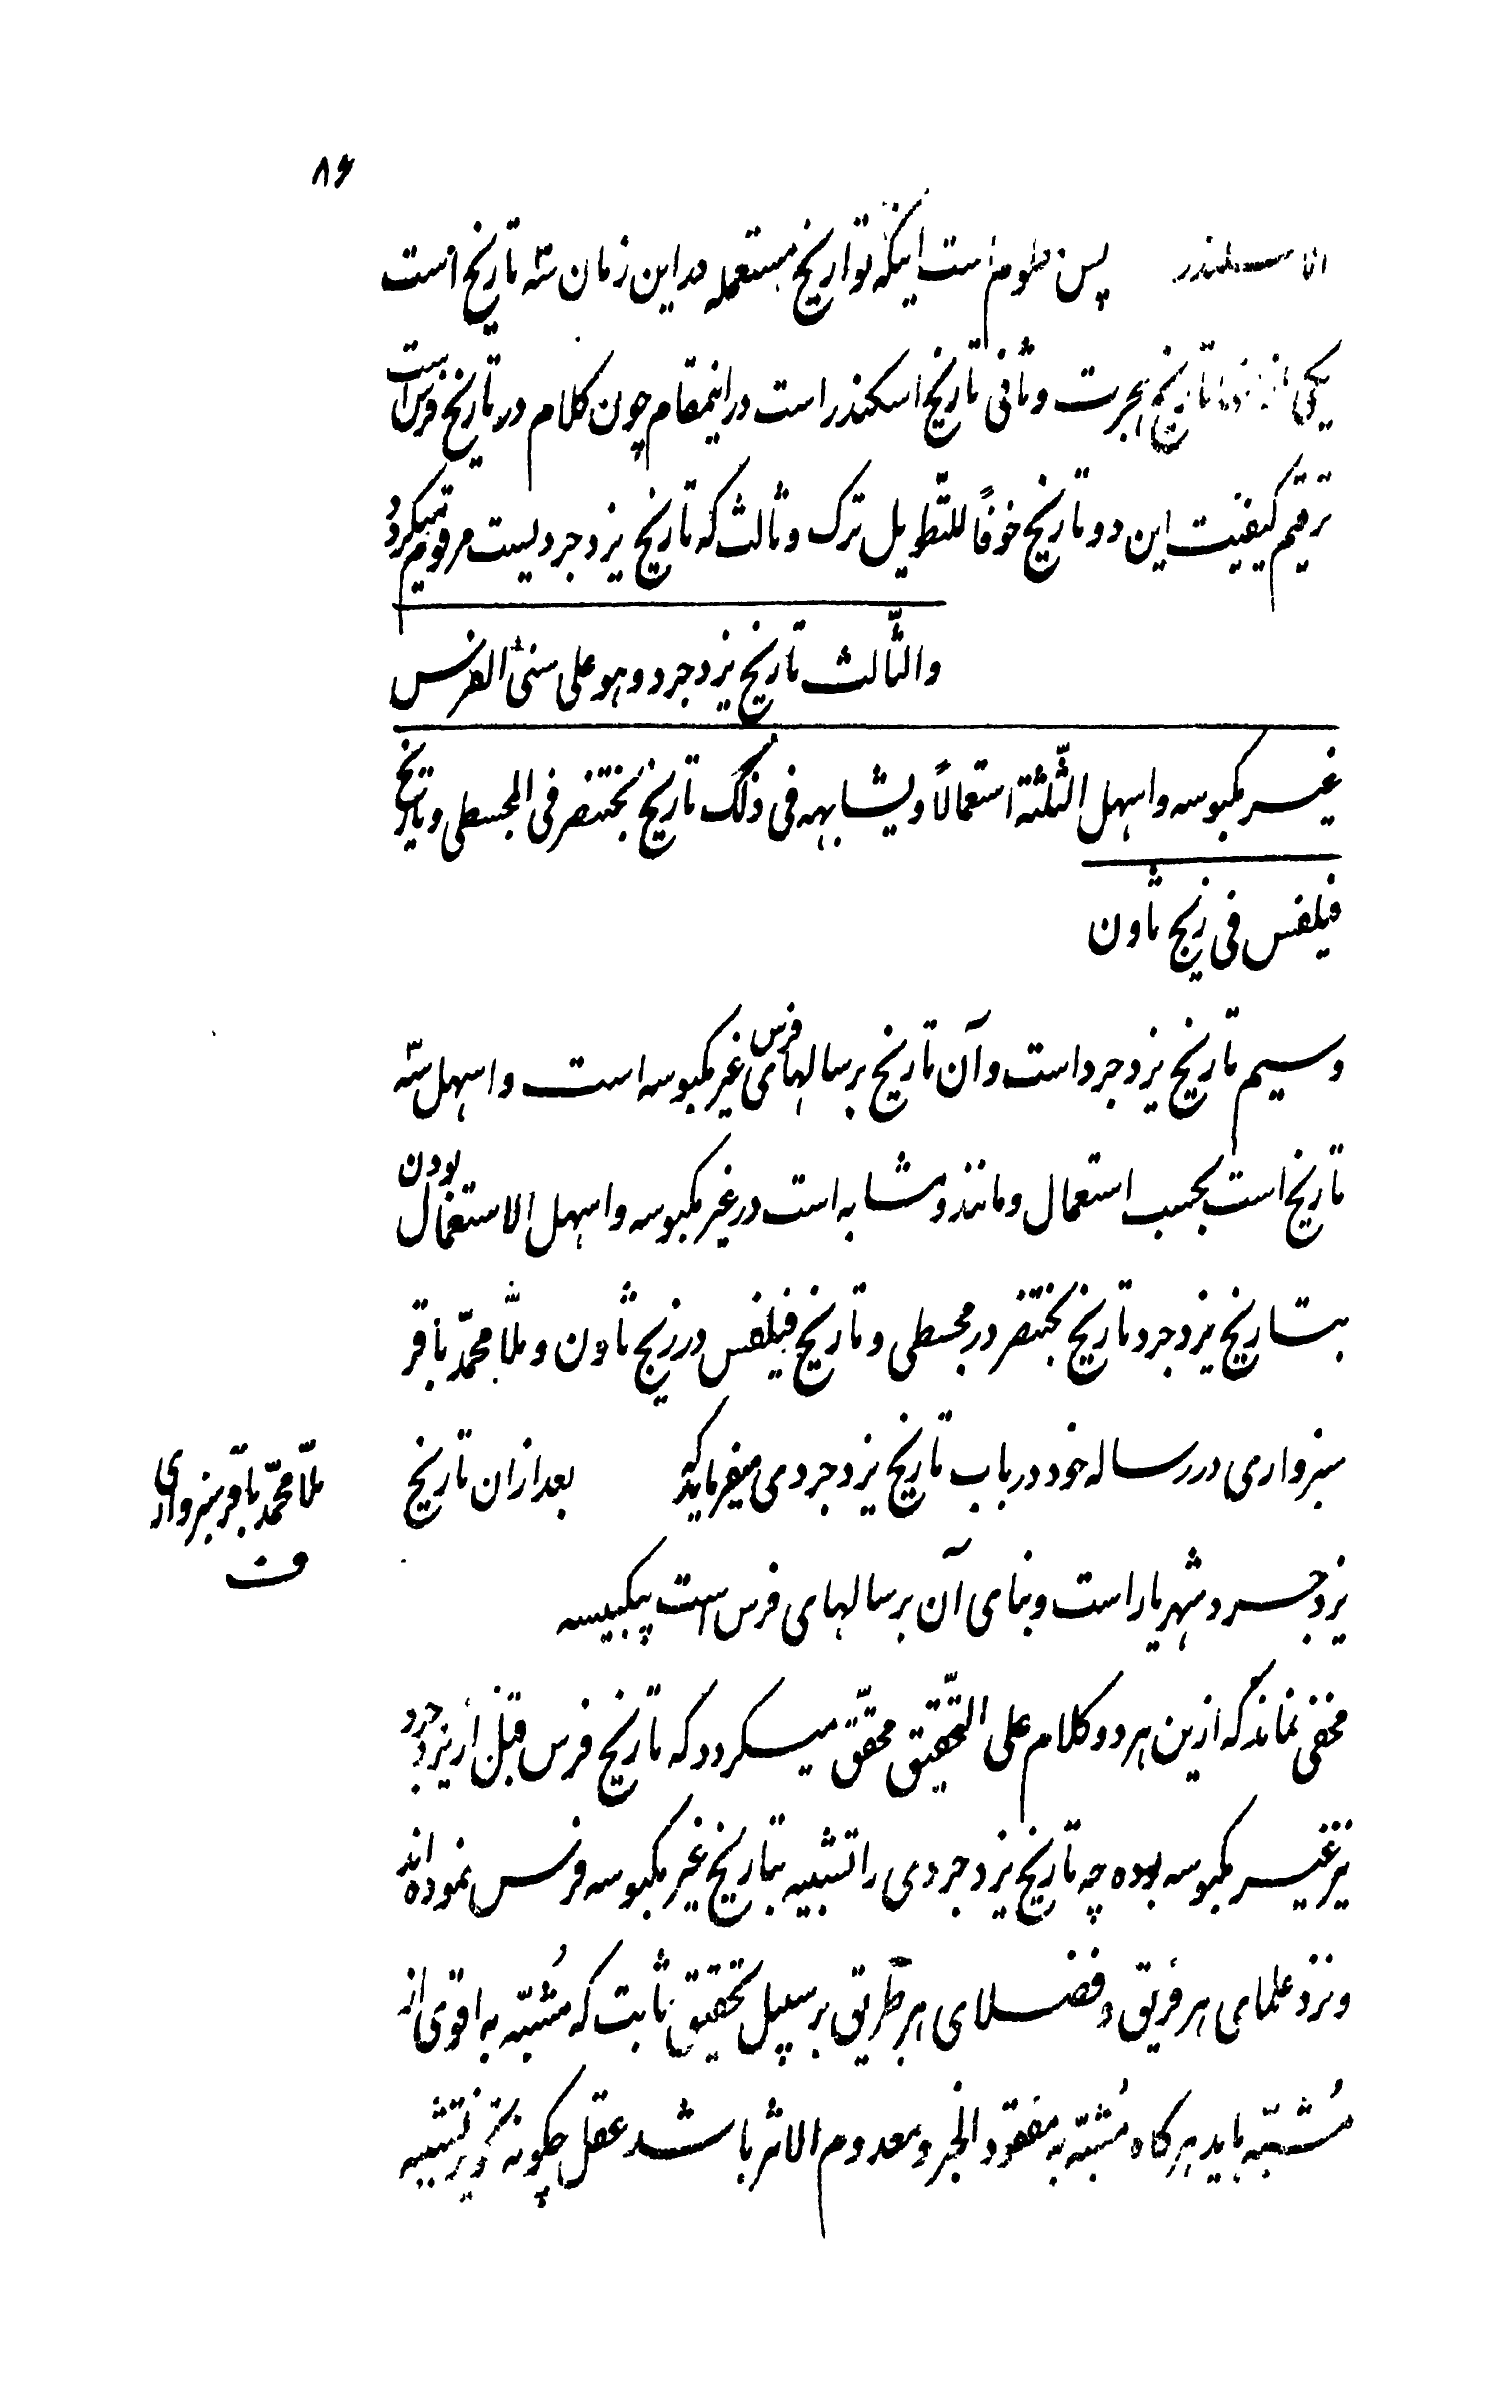 ۸۶
پس معلوم است اینکه تواریخ مستعمله در این زمان سّه تاریخ است
یکی تاریخ هجرت و ثانی تاریخ اسکندر است در اینمقام چون کلام در تاریخ فرس است
ترقیم کیفیت این دو تاریخ خوفاً للتّطویل ترک و ثالث که تاریخ یزدجردیست مرقوم میکردد
والثّالث تاریخ یزدجرد وهو علی سنی الفرس
غیر مکبوسه واسهل الثّلثة استعمالاً ویشابهه فی ذلک تاریخ بختنصر فی المجسطی وتاریخ
فیلفس فی زیج ثاون
وسیم تاریخ یزدجرد است و آن تاریخ برسالهای فرس غیر مکبوسه است و اسهل سّه
تاریخ است بحسب استعمال و مانند و مشابه است در غیر مکبوسه و اسهل الاستعمال بودن
بتاریخ یزدجرد تاریخ بختنصر در مجسطی و تاریخ فیلفس در زیج ثاون و ملّا محمّد باقر
سبزواری در رساله خود در باب تاریخ یزدجردی میفرماید که بعد ازان تاریخ
ملّا محمّد باقر سبزواری
ف
یزدجرد شهریار است و بنای آن برسالهای فرس است پیکبیسه
مخفی نماند که ازین هر دو کلام علی التّحقیق محقّق میکردد که تاریخ فرس قبل از یزدجرد
نیز غیر مکبوسه بوده چه تاریخ یزدجردی را تشبیه بتاریخ غیر مکبوسه فرس نموده‌اند
و نزد علمای هر فریق و فضلای هر طریق بر سبیل تحقیق ثابت که مُشبّه به اقوی از
مُشبّه باید هرکاه مُشبّه به مفقود الخبر و معدوم الاثر باشد عقل چکونه تجویز تشبیه